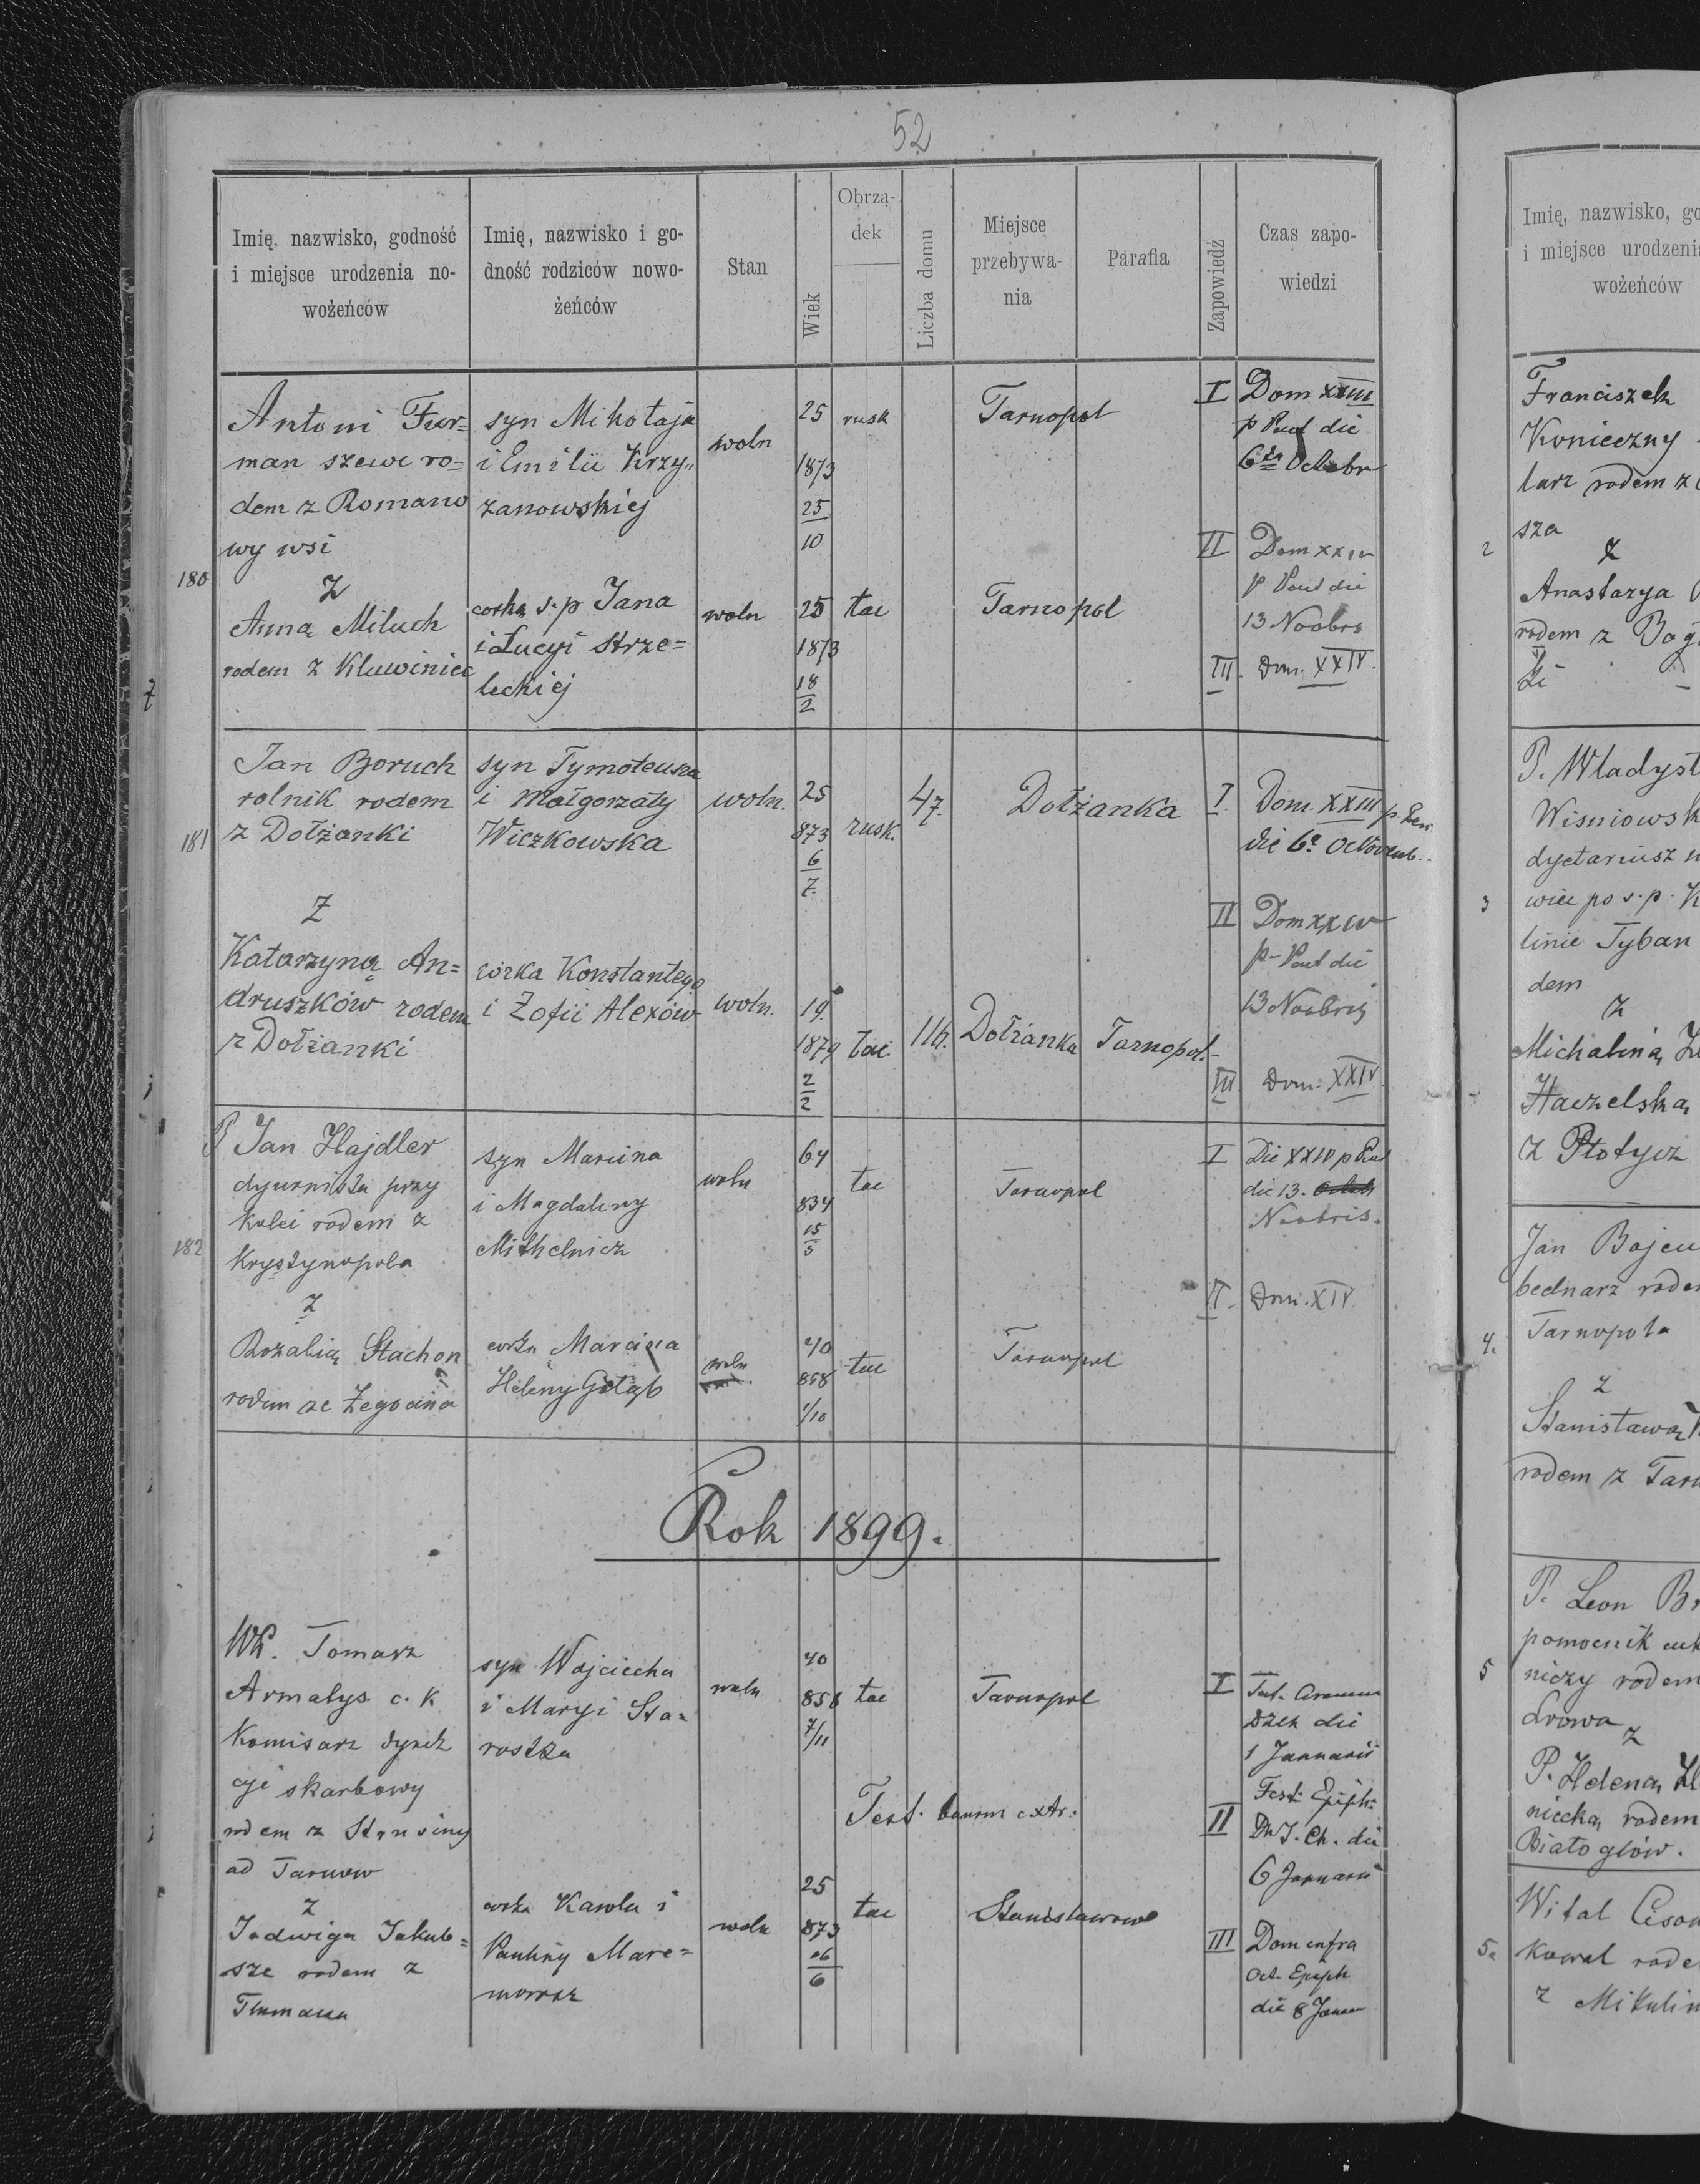 52
Imię, nazwisko, godność
i miejsce urodzenia no-
wożeńców
Imię, nazwisko i go-
dność rodziców nowo-
żeńców
Stan
Wiek
Obrzą-
dek
Liczba domu
Miejsce
przebywa-
nia
Parafia
Zapowiedź
Czas zapo-
wiedzi
180
Antoni Fur=
man szewc ro=
dem z Romano
wy wsi
z
Anną Miluch
rodem z Kluwiniec
syn Mikołaja
i Emilii Krzy„
żanowskiej
corką s.p Jana
i Łucyi Strze=
leckiej
woln
woln
25
1873
25
10
25
1873
18
2
rusk
łac
Tarnopol
Tarnopol
I Dom XXIII
p Pent die
6ta Octobr
II Dom XXIV
p Pent die
13 Noobrs
III. Dom. XXIV.
181
Jan Boruch
rolnik rodem
z Dołżanki
z
Katarzyną An=
druszków rodem
z Dołżanki
syn Tymoteusza
i Małgorzaty
Wiczkowska
córka Konstantego
i Zofii Alexów
woln.
woln.
25
873
6
7.
19.
1879
2
2
rusk.
łac.
47.
116.
Dołżanka
Dołżanka
Tarnopol.
I. Dom. XXIII p. Pen
die 6a
II Dom XXIV
p- Pent die
13 Noobris
III. Dom. XXIV.
182
P Jan Hajdler
dyurnista przy
kolei rodem z
Krystynopola
z
Rozalią Stachoń
rodem ze Żegocina
syn Marcina
i Magdaleny
Mithelnich
corka Marcina
Heleny Gołąb
woln
woln
64
834
15
5
40
858
1/10
łac
łac
Tarnopol
Tarnopol
I Die XXIV p Pent
die 13. Octob
Noobris.
II. Dom. XIV.
Rok 1899.
WP. Tomasz
Armatys c. k
Komisarz dyrek
cyi skarbowy
rodem z
ad Tarnow
z
Jadwiga Jakub=
sze rodem z
Tłumacza
syn Wojciecha
i Maryi Sta=
rostka
corka Karola i
Pauliny Mare=
morosz
woln
woln
40
858
7/11
25
873
16
6
łac
Test. bannm extr.
łac
Tarnopol
Stanisławowo
I Fest. Circumm
DJCh die
1 Januarii
Fest. Epiph.
II DnJ. Ch. die
6 Januarii
III Dom infra
Oct. Epiph
die 8 Januar
Imię, nazwisko, go
i miejsce urodzeni
wożeńców
Franciszek
Konieczny
larz rodem z
sza
2
z
Anastazya
rodem z Bog
P. Władysł
Wisniowsk
dyetariusz w
3
wiec po s.p. K
linie Tyban
dem
z
Michaliną
Haczelską
z Płotycz
Jan Bajeu
bednarz rode
Tarnopola
4.
z
Stanisławą
rodem z Tarn
P. Leon B
pomocnik cuk
5
niczy rodem
Lwowa
z
P. Heleną
niecką rodem
Białogłów.
Wital
5a
Kowal rode
z Mikulin